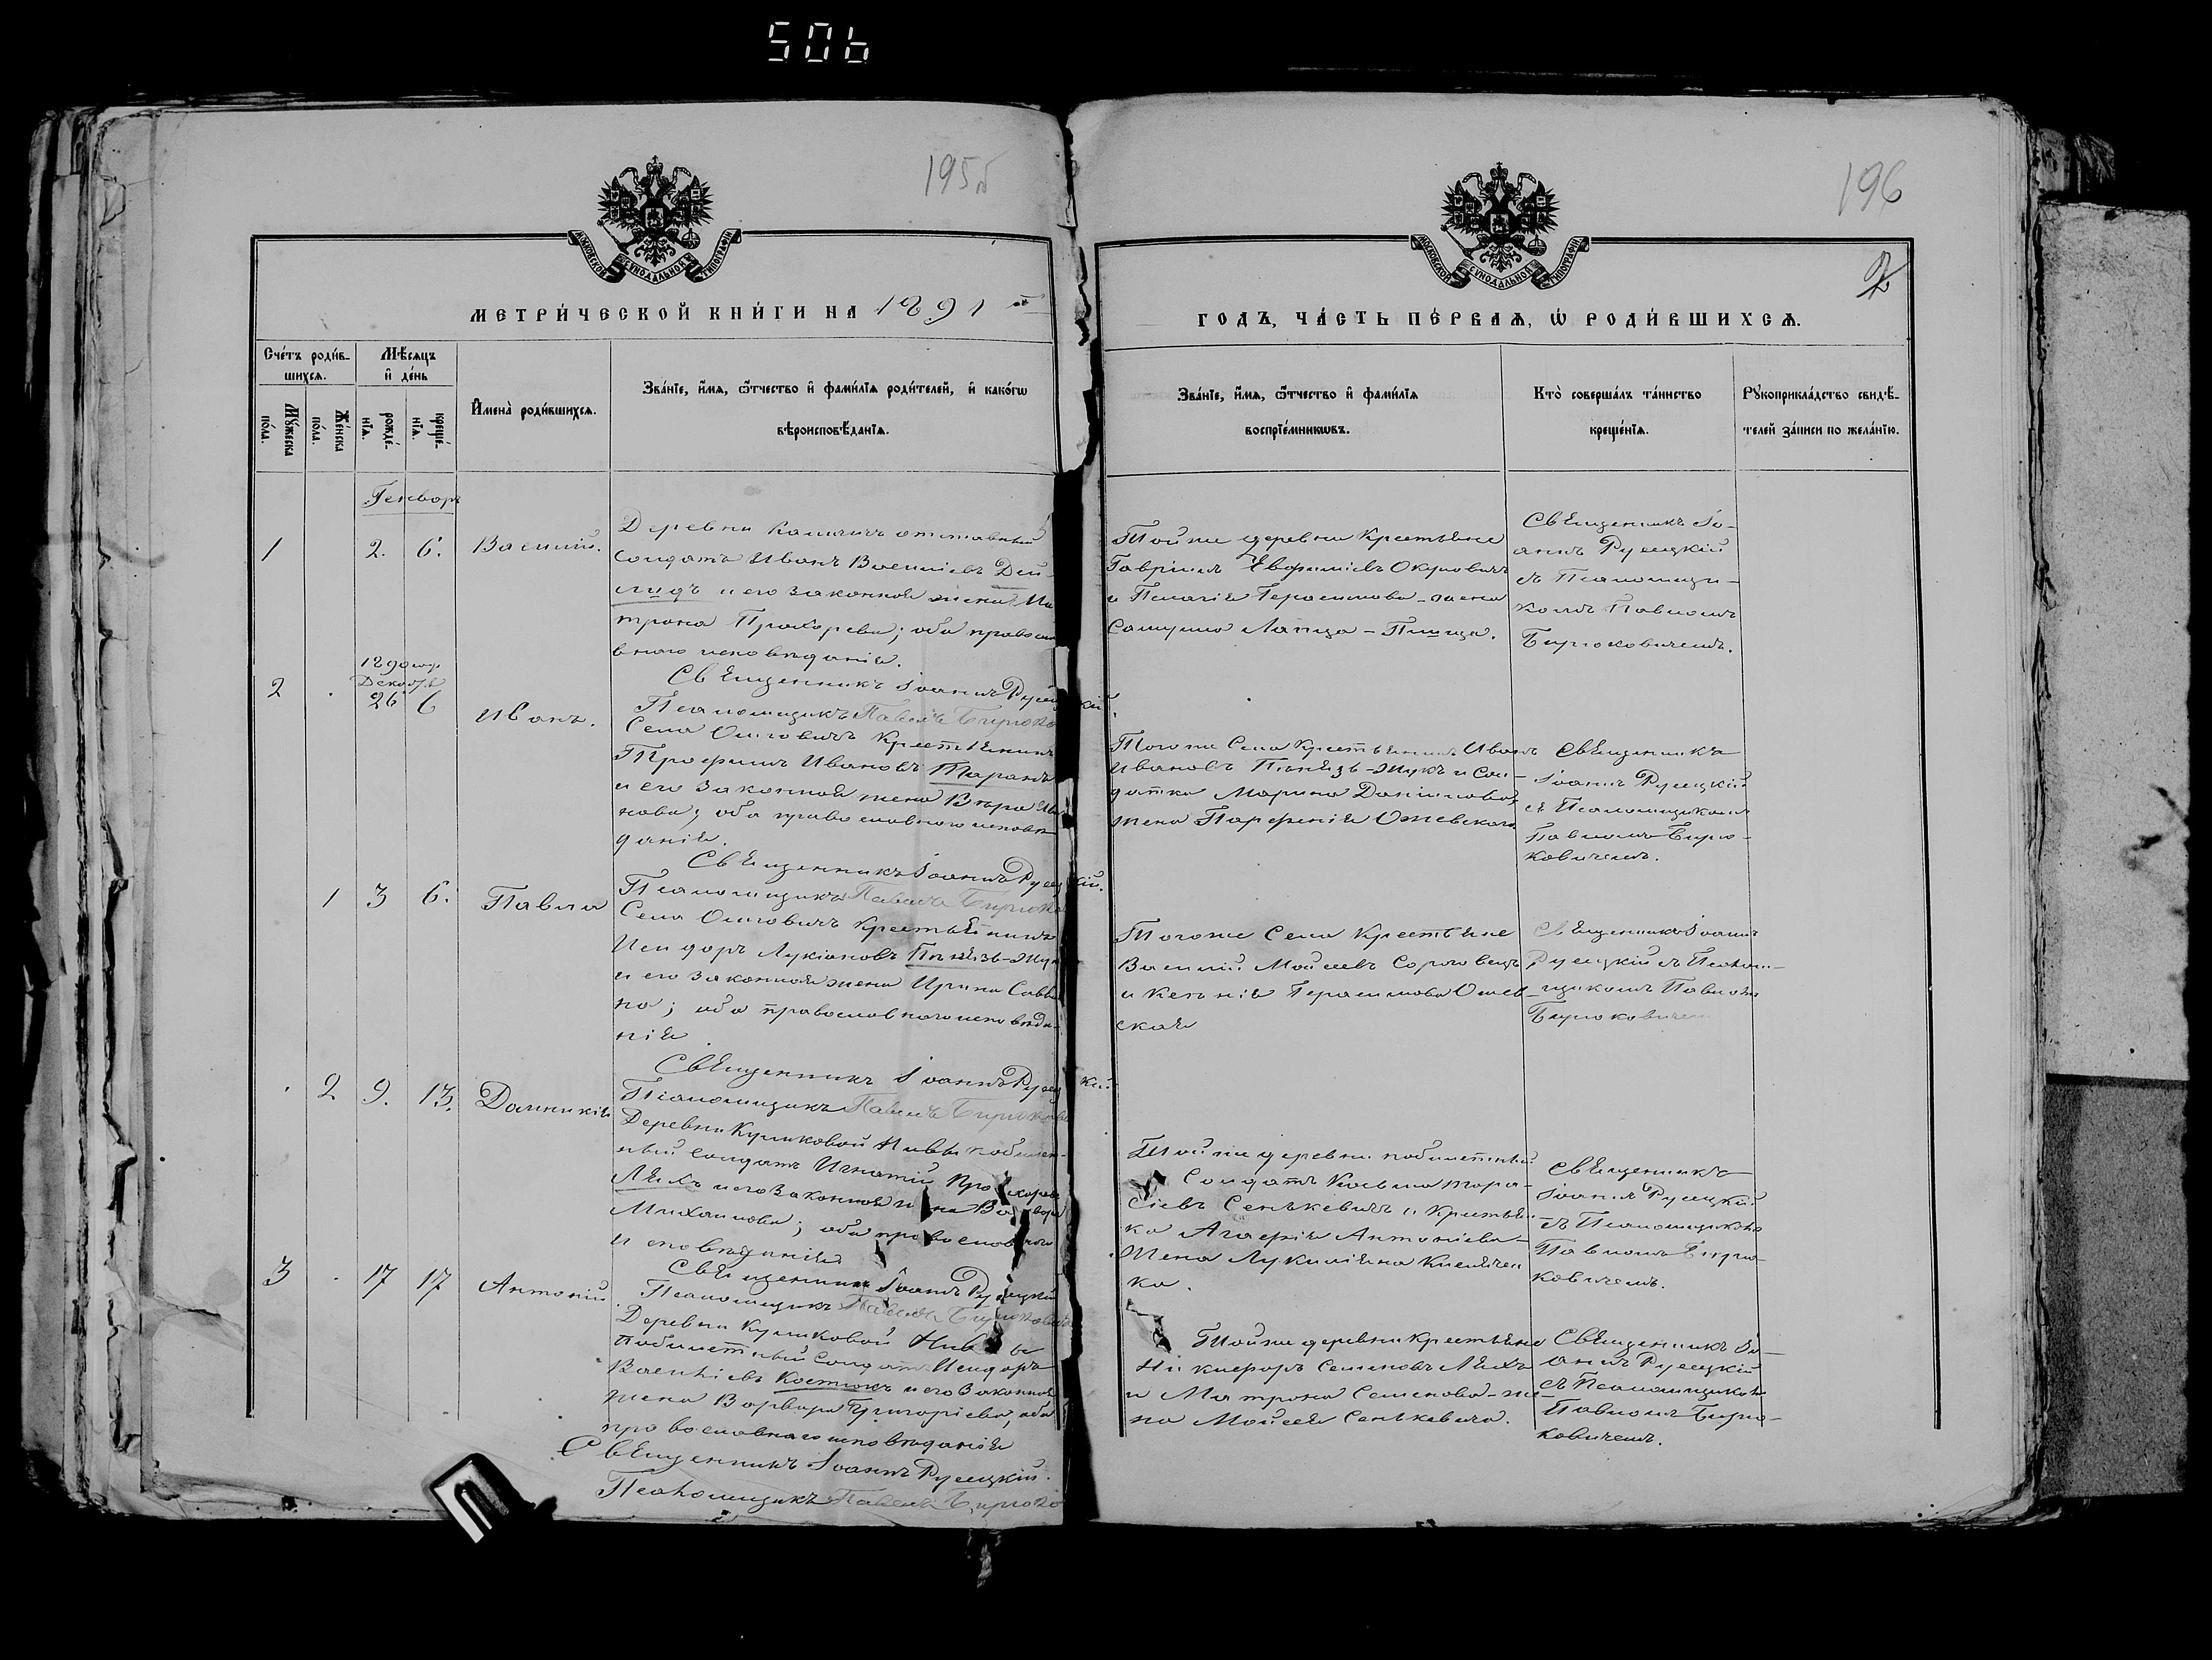 506
195об
196
МОСКОВСКОЙ СѴНОДАЛЬНОЙ ТИПОГРАФІИ
МОСКОВСКОЙ СѴНОДАЛЬНОЙ ТИПОГРАФІИ
2
МЕТРИ́ЧЕСКОЙ КНИ́ГИ НА 1891
ГОДЪ, ЧА́СТЬ ПЕ́РВАѦ, Ѡ҆ РОДИ́ВШИХСѦ.
Сче́тъ роди́в-
шихсѧ.
Мѣ́сѧцъ
и҆ де́нь
Мꙋ́жеска
по́ла.
Же́нска
по́ла.
рожде́-
нїѧ.
креще́-
нїѧ.
И҆мена̀ роди́вшихсѧ.
Зва́нїе, и҆́мѧ, ѻ҆́тчество и҆ фами́лїѧ роди́телей, и҆ како́гѡ
вѣроисповѣ́данїѧ.
Зва́нїе, и҆́мѧ, ѻ҆́тчество и҆ фами́лїѧ
воспрїе́мникѡвъ.
Кто̀ соверша́лъ та́инство
креще́нїѧ.
Рꙋкоприкла́дство свидѣ́-
телей за́писи по жела́нїю.
Генворь
1 2. 6. Василій.
Деревни отставный
солдатъ Иванъ Василіевъ Дей-
лидъ и его законная жена Ма
трона Прохорева; оба правосла
внаго исповѣданія.
Священникъ Іоаннъ Русецкій
Псаломщикъ Павелъ Бирюко
Тойже деревни Крестьяне
Гавріилъ Евфиміевъ Окулович
и Пелагія Герасимова жена
Самуила Лапица-Пишца.
Священникъ Іо-
аннъ Русецкій
съ Псаломщи-
комъ Павломъ
Бирюковичемъ.
1890 год.
Декабря
2 26 6 Иванъ.
Села Осиговичъ Крестьянинъ
Трофимъ Ивановъ Таранъ
и его законная жена Вѣра Ива
нова; оба православнаго исповѣ
данія.
Священникъ Іоаннъ Русецкій.
Псаломщикъ Павелъ Бирюко
Тогоже Села Крестьянинъ Иванъ
Ивановъ Пѣнязь-Жукъ и Сол-
датка Марина Даніилова
жена Парфенія Ожевскаго
Священникъ
Іоаннъ Русецкій
съ Псаломщикомъ
Павломъ Бирю-
ковичемъ.
1 3 6. Павла
Села Осиговичъ Крестьянинъ
Исидоръ Лукіановъ Пѣнязь-Жук
и его законная жена Ирина Савви
на; оба православнаго исповѣда-
нія
Священникъ Іоаннъ Русецкій
Псаломщикъ Павелъ Бирюков
Тогоже Села Крестьяне
Василій Моисеевъ Сороговецъ
и Ксенія Герасимова Ожев-
ская
Священникъ Іоаннъ
Русецкій съ Псалом-
щикомъ Павломъ
Бирюковичем
2 9. 13. Домникія
Деревни Куликовой Нивы побилет-
ный солдатъ Игнатій Прохоровъ
Ляхъ и его законная жена Варвара
Михаилова; оба православнаго
исповѣданія
Священникъ Іоаннъ Русецкій
Псаломщикъ Павелъ Бирюкович
Тойже деревни побилетный
Солдатъ Косьма Тара-
сіевъ Сенькевичъ и Крестьян
ка Агафія Антоніева
жена Лукиліяна Кисялен
ка.
Священникъ
Іоаннъ Русецкій
съ Псаломщикомъ
Павломъ Бирю-
ковичемъ.
3 17 17 Антоній.
Деревни Куликовой Нивы
побилетный Солдатъ Исидоръ
Василіевъ Костюкъ и его законная
жена Варвара Григоріева, оба
православнаго исповѣданія
Священникъ Іоаннъ Русецкій.
Псаломщикъ Павелъ Бирюко
Тойже деревни Крестьяне
Никифоръ Семеновъ Ляхъ
и Матрона Семенова-же-
на Моисея Сенькевича.
Священникъ Іо-
аннъ Русецкій
съ Псаломщикомъ
Павломъ Бирю-
ковичемъ.